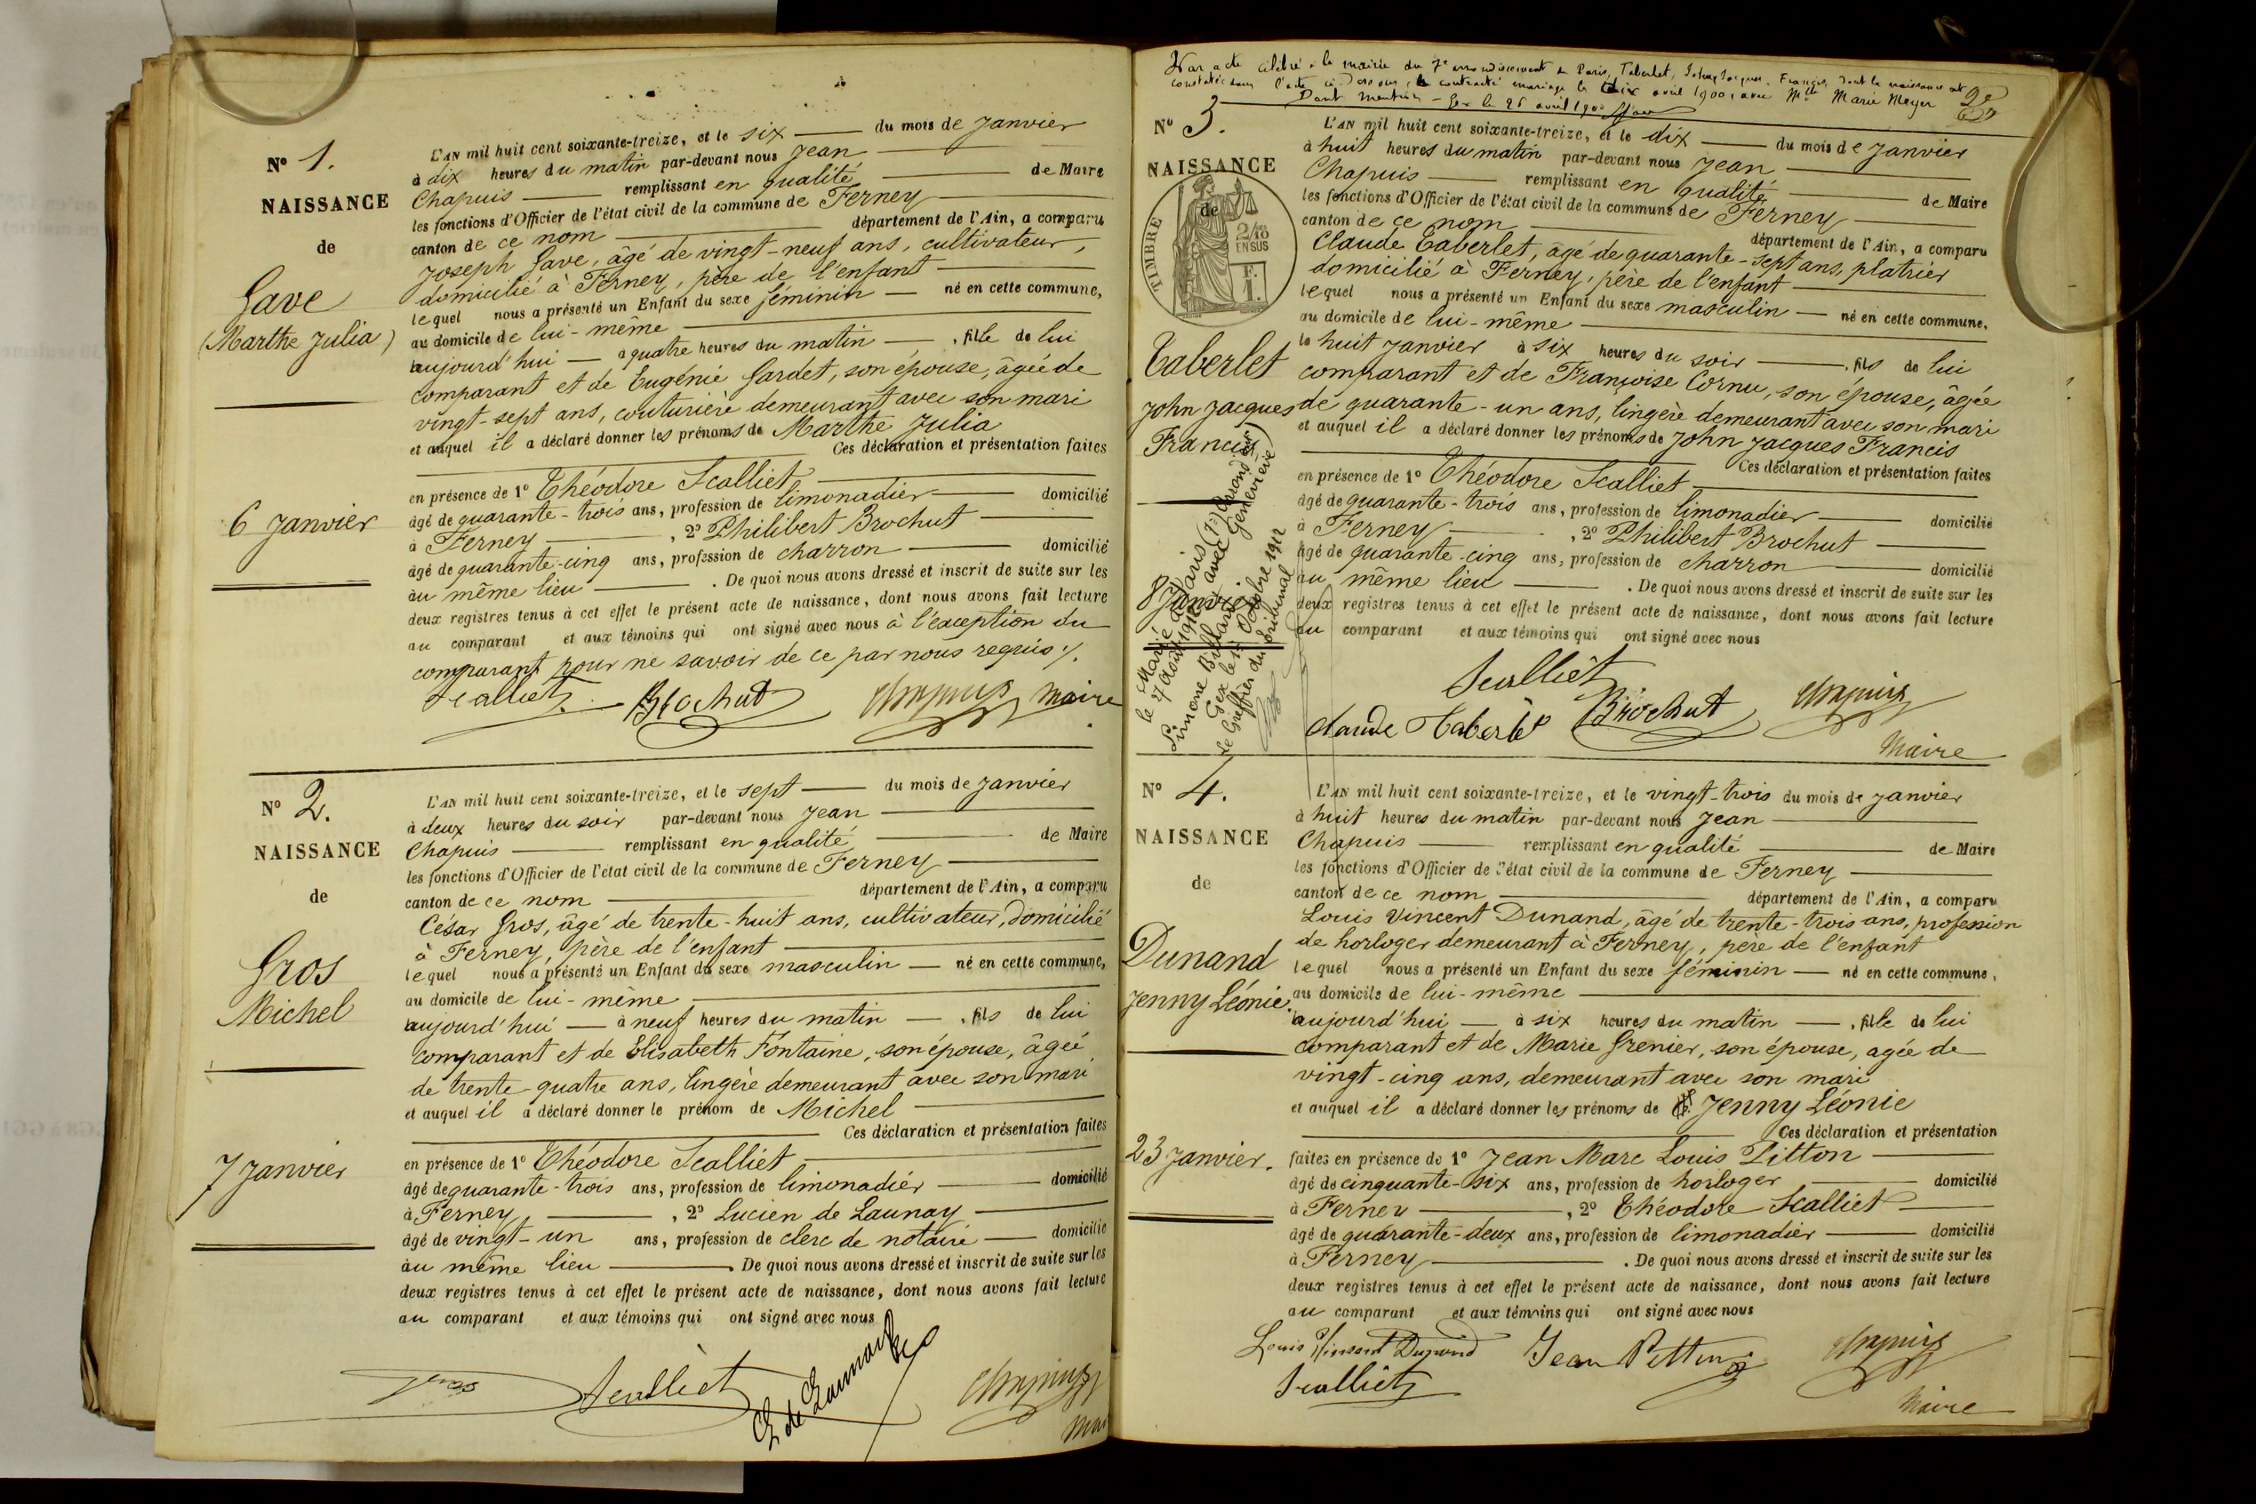 Nº 1.
NAISSANCE
de
Gave
(Marthe Julia)
6 Janvier
L'AN mil huit cent soixante-treize, et le six du mois de Janvier
à dix heures du matin par-devant nous Jean
Chapuis remplissant en qualité de Maire
les fonctions d'Officier de l'état civil de la commune de Ferney
canton de ce nom département de l'Ain, a comparu
Joseph Gave, âgé de vingt-neuf ans, cultivateur,
domicilié à Ferney, père de l'enfant
lequel nous a présenté un Enfant du sexe féminin né en cette commune,
au domicile de lui-même
aujourd'hui à quatre heures du matin, fille de lui
comparant et de Eugénie Gardet, son épouse, âgée de
vingt-sept ans, couturière demeurant avec son mari
et auquel il a déclaré donner les prénoms de Marthe Julia
Ces déclaration et présentation faites
en présence de 1º Théodore Scalliet
âgé de quarante-trois ans, profession de limonadier domicilié
à Ferney, 2º Philibert Brochut
âgé de quarante-cinq ans, profession de charron domicilié
au même lieu. De quoi nous avons dressé et inscrit de suite sur les
deux registres tenus à cet effet le présent acte de naissance, dont nous avons fait lecture
au comparant et aux témoins qui ont signé avec nous à l'exception du
comparant pour ne savoir de ce par nous requis.
Scalliet Brochut Chapuis Maire
Nº 2.
NAISSANCE
de
Gros
Michel
7 Janvier
L'AN mil huit cent soixante-treize, et le sept du mois de Janvier
à deux heures du soir par-devant nous Jean
Chapuis remplissant en qualité de Maire
les fonctions d'Officier de l'état civil de la commune de Ferney
canton de ce nom département de l'Ain, a comparu
César Gros, âgé de trente-huit ans, cultivateur, domicilié
à Ferney, père de l'enfant
lequel nous a présenté un Enfant du sexe masculin né en cette commune,
au domicile de lui-même
aujourd'hui à neuf heures du matin, fils de lui
comparant et de Elisabeth Fontaine, son épouse, âgée
de trente-quatre ans, lingère demeurant avec son mari
et auquel il a déclaré donner le prénom de Michel
Ces déclaration et présentation faites
en présence de 1º Théodore Scalliet
âgé de quarante-trois ans, profession de limonadier domicilié
à Ferney, 2º Lucien de Launay
âgé de vingt-un ans, profession de clerc de notaire domicilié
au même lieu. De quoi nous avons dressé et inscrit de suite sur les
deux registres tenus à cet effet le présent acte de naissance, dont nous avons fait lecture
au comparant et aux témoins qui ont signé avec nous
Gros Scalliet L de Launay Chapuis
Par acte célébré à la mairie du 7e arrondissement de Paris, Taberlet, John Jacques Francis, dont la naissance est
constatée dans l'acte ci-dessous, a contracté mariage le dix avril 1900, avec Mlle Marie Meyer
Dont mention - Gex le 26 avril 1900
Nº 3.
NAISSANCE
de
TIMBRE
2/10 EN SUS
F. 1.
Taberlet
John Jacques
Francis
8 Janvier
Marié à Paris
le 27 Août 1912 avec
Simone Billard
Gex le 1er Octobre 1912
Le Greffier du tribunal
L'AN mil huit cent soixante-treize, et le dix du mois de Janvier
à huit heures du matin par-devant nous Jean
Chapuis remplissant en qualité de Maire
les fonctions d'Officier de l'état civil de la commune de Ferney
canton de ce nom département de l'Ain, a comparu
Claude Taberlet, âgé de quarante-sept ans, platrier
domicilié à Ferney, père de l'enfant
lequel nous a présenté un Enfant du sexe masculin né en cette commune,
au domicile de lui-même
le huit Janvier à six heures du soir, fils de lui
comparant et de Françoise Cornu, son épouse, âgée
de quarante-un ans, lingère demeurant avec son mari
et auquel il a déclaré donner les prénoms de John Jacques Francis
Ces déclaration et présentation faites
en présence de 1º Théodore Scalliet
âgé de quarante-trois ans, profession de limonadier domicilié
à Ferney, 2º Philibert Brochut
âgé de quarante-cinq ans, profession de charron domicilié
au même lieu. De quoi nous avons dressé et inscrit de suite sur les
deux registres tenus à cet effet le présent acte de naissance, dont nous avons fait lecture
au comparant et aux témoins qui ont signé avec nous
Scalliet
Claude Taberlet Brochut Chapuis
Maire
Nº 4.
NAISSANCE
de
Dunand
Jenny Léonie.
23 Janvier.
L'AN mil huit cent soixante-treize, et le vingt-trois du mois de Janvier
à huit heures du matin par-devant nous Jean
Chapuis remplissant en qualité de Maire
les fonctions d'Officier de l'état civil de la commune de Ferney
canton de ce nom département de l'Ain, a comparu
Louis Vincent Dunand, âgé de trente-trois ans, profession
de horloger demeurant à Ferney, père de l'enfant
lequel nous a présenté un Enfant du sexe féminin né en cette commune,
au domicile de lui-même
aujourd'hui à six heures du matin, fille de lui
comparant et de Marie Grenier, son épouse, agée de
vingt-cinq ans, demeurant avec son mari
et auquel il a déclaré donner les prénoms de Jenny Léonie
Ces déclaration et présentation
faites en présence de 1º Jean Marc Louis Pitton
âgé de cinquante-six ans, profession de horloger domicilié
à Ferney, 2º Théodore Scalliet
âgé de quarante-deux ans, profession de limonadier domicilié
à Ferney. De quoi nous avons dressé et inscrit de suite sur les
deux registres tenus à cet effet le présent acte de naissance, dont nous avons fait lecture
au comparant et aux témoins qui ont signé avec nous
Louis Vinsent Dunand Jean Pitton Chapuis
Scalliet Maire